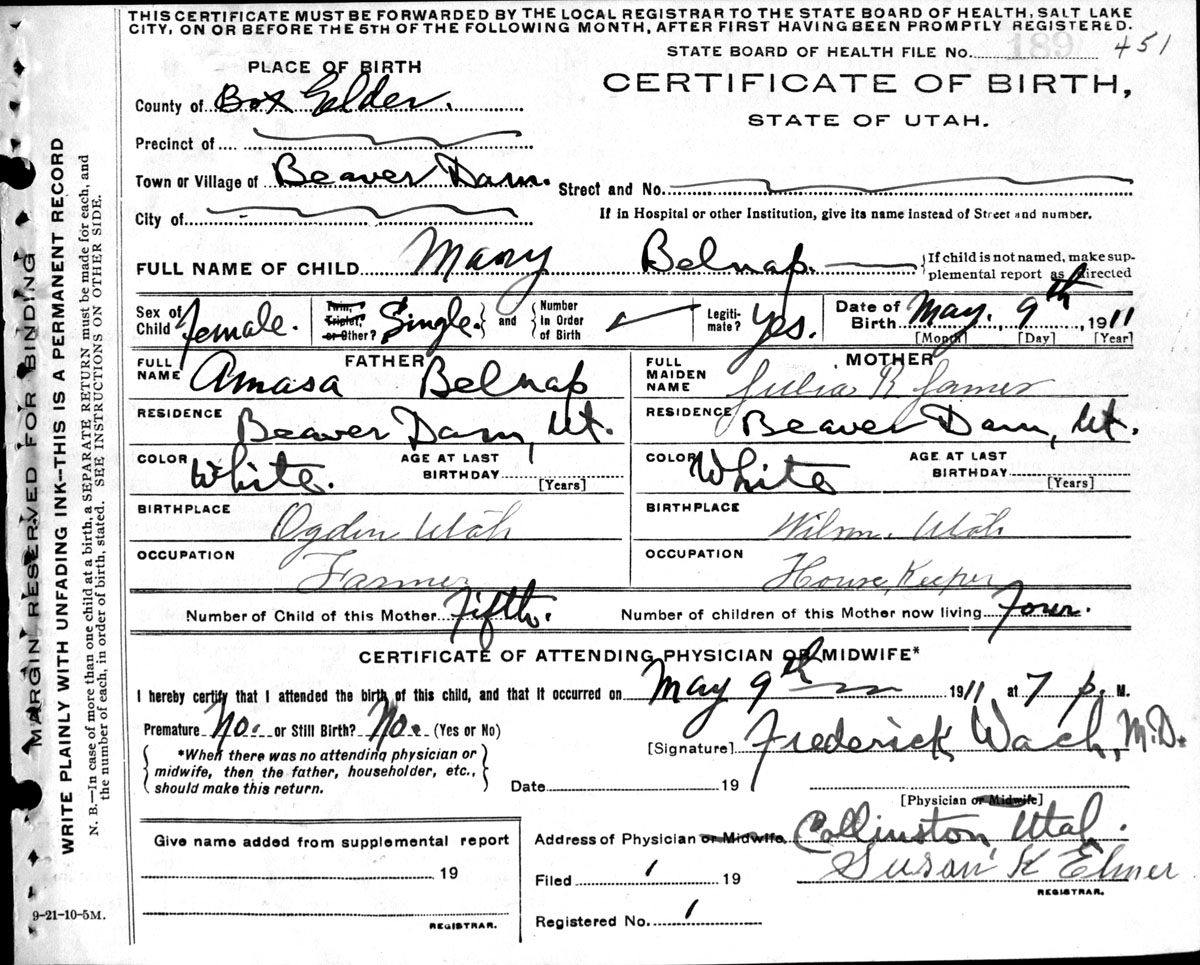 THIS CERTIFICATE MUST BE FORWARDED BY THE LOCAL REGISTRAR TO THE STATE BOARD OF HEALTH, SALT LAKE
CITY, ON OR BEFORE THE 5TH OF THE FOLLOWING MONTH, AFTER FIRST HAVING BEEN PROMPTLY REGISTERED.
STATE BOARD OF HEALTH FILE No. 189 451
PLACE OF BIRTH
CERTIFICATE OF BIRTH,
STATE OF UTAH.
County of Box Elder.
Precinct of
Town or Village of Beaver Dam.
Street and No.
City of
If in Hospital or other Institution, give its name instead of Street and number.
FULL NAME OF CHILD Mary Belnap. {If child is not named, make sup-
plemental report as directed
Sex of Child female. Twin, Triplet, or Other? Single. and Number In Order of Birth Legiti-mate? Yes. Date of Birth May. 9th, 1911
[Month] [Day] [Year]
FATHER
FULL NAME Amasa Belnap
MOTHER
FULL MAIDEN NAME Julia R James
RESIDENCE Beaver Dam, Ut.
RESIDENCE Beaver Dam, Ut.
COLOR White. AGE AT LAST BIRTHDAY [Years]
COLOR White AGE AT LAST BIRTHDAY [Years]
BIRTHPLACE Ogden Utah
BIRTHPLACE Wilson, Utah
OCCUPATION Farmer
OCCUPATION House Keeper
Number of Child of this Mother Fifth. Number of children of this Mother now living Four.
CERTIFICATE OF ATTENDING PHYSICIAN OR MIDWIFE*
I hereby certify that I attended the birth of this child, and that it occurred on May 9th 1911 at 7 p. M.
Premature No. or Still Birth? No. (Yes or No)
[Signature] Frederick Wach, M.D.
{*When there was no attending physician or
midwife, then the father, householder, etc.,
should make this return.}
Date 19
[Physician or Midwife]
Address of Physician or Midwife Collinston, Utah.
Give name added from supplemental report
19
REGISTRAR.
Filed 1 19 Susan K Elmer
REGISTRAR.
Registered No. 1
9-21-10-5M.
MARGIN RESERVED FOR BINDING
WRITE PLAINLY WITH UNFADING INK—THIS IS A PERMANENT RECORD
N. B.—In case of more than one child at a birth, a SEPARATE RETURN must be made for each, and
the number of each, in order of birth, stated. SEE INSTRUCTIONS ON OTHER SIDE.